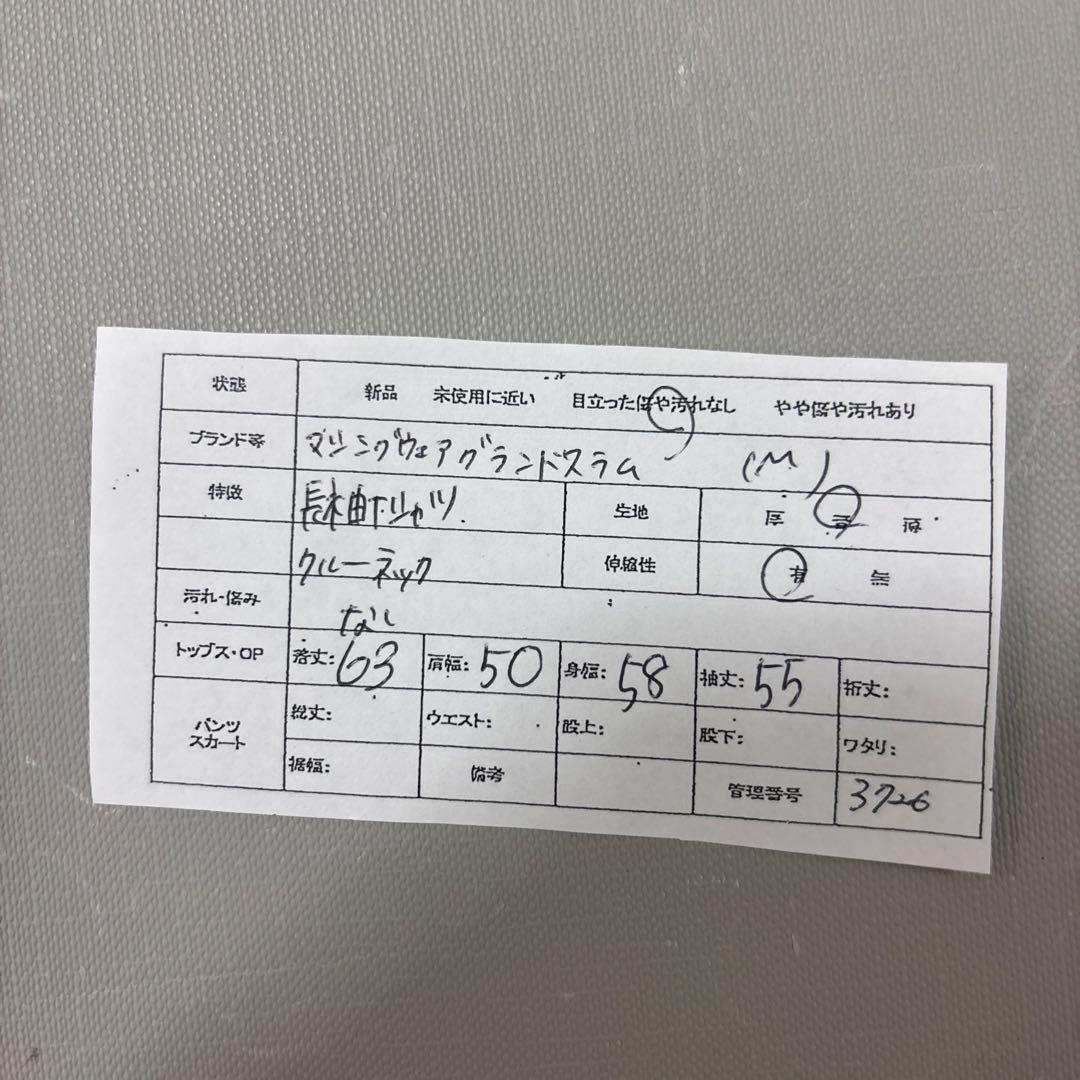 状態 新品 未使用に近い 目立った傷や汚れなし やや傷や汚れあり
ブランド等 マンシングウェアグランドスラム (M)
特徴 長袖Tシャツ 生地 厚 薄
クルーネック 伸縮性 有 無
汚れ・傷み なし
トップス・OP 着丈: 63 肩幅: 50 身幅: 58 袖丈: 55 裄丈:
パンツ スカート 総丈: ウエスト: 股上: 股下: ワタリ:
裾幅: 備考 管理番号 3726